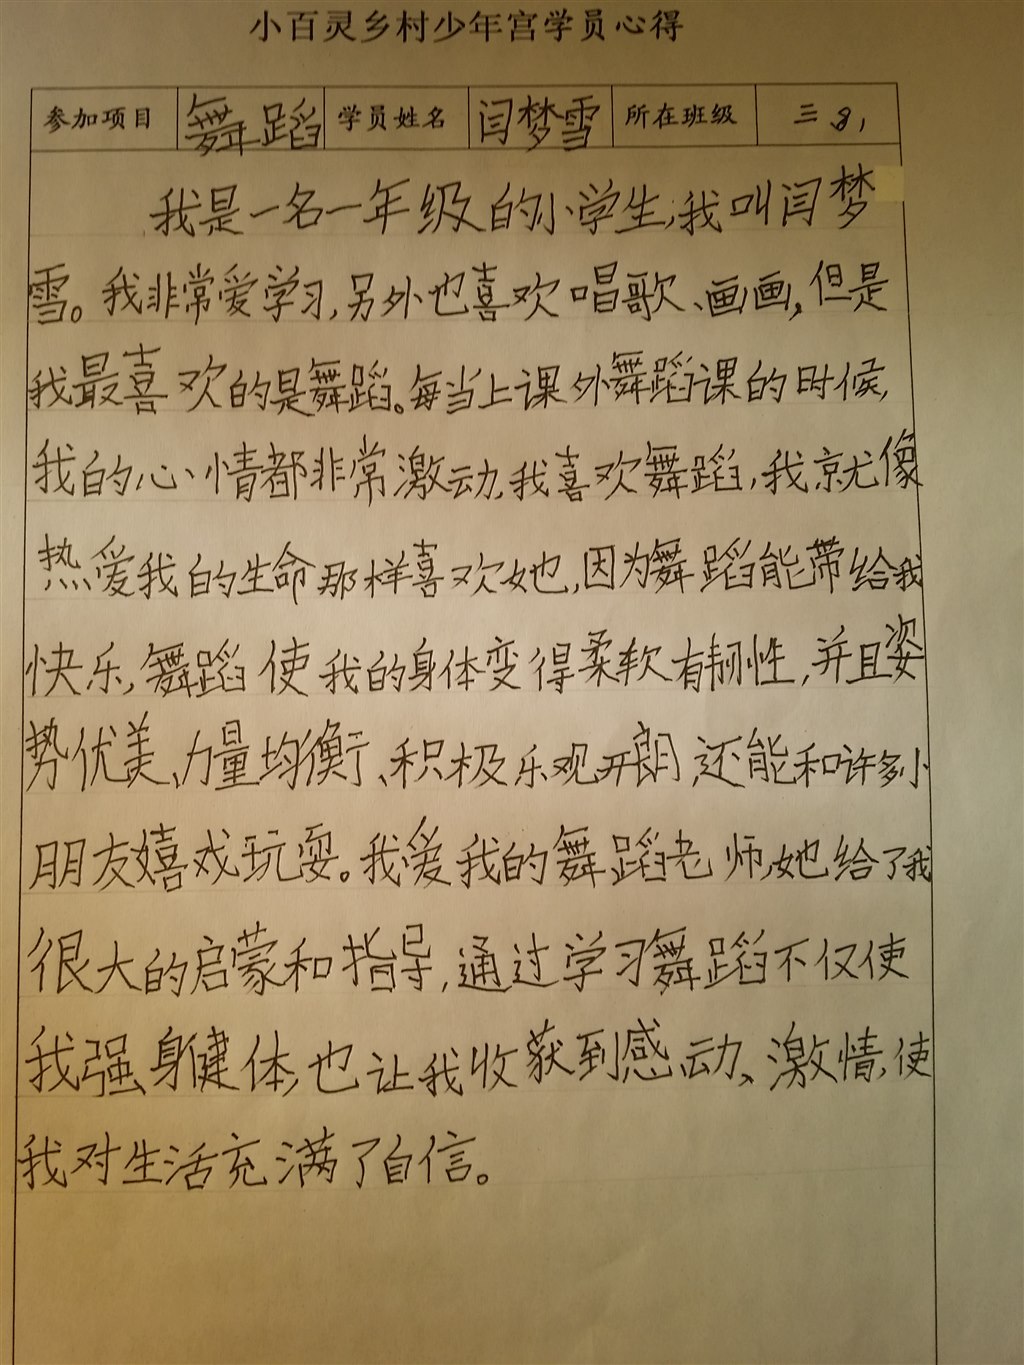 小百灵乡村少年宫学员心得
参加项目 舞蹈 学员姓名 闫梦雪 所在班级 三.8,
我是一名一年级的小学生,我叫闫梦
雪。我非常爱学习,另外也喜欢唱歌、画画,但是
我最喜欢的是舞蹈。每当上课外舞蹈课的时候,
我的心情都非常激动,我喜欢舞蹈,我就像
热爱我的生命那样喜欢她,因为舞蹈能带给我
快乐,舞蹈使我的身体变得柔软有韧性,并且姿
势优美、力量均衡、积极乐观开朗,还能和许多小
朋友嬉戏玩耍。我爱我的舞蹈老师,她给了我
很大的启蒙和指导,通过学习舞蹈不仅使
我强身健体,也让我收获到感动、激情,使
我对生活充满了自信。